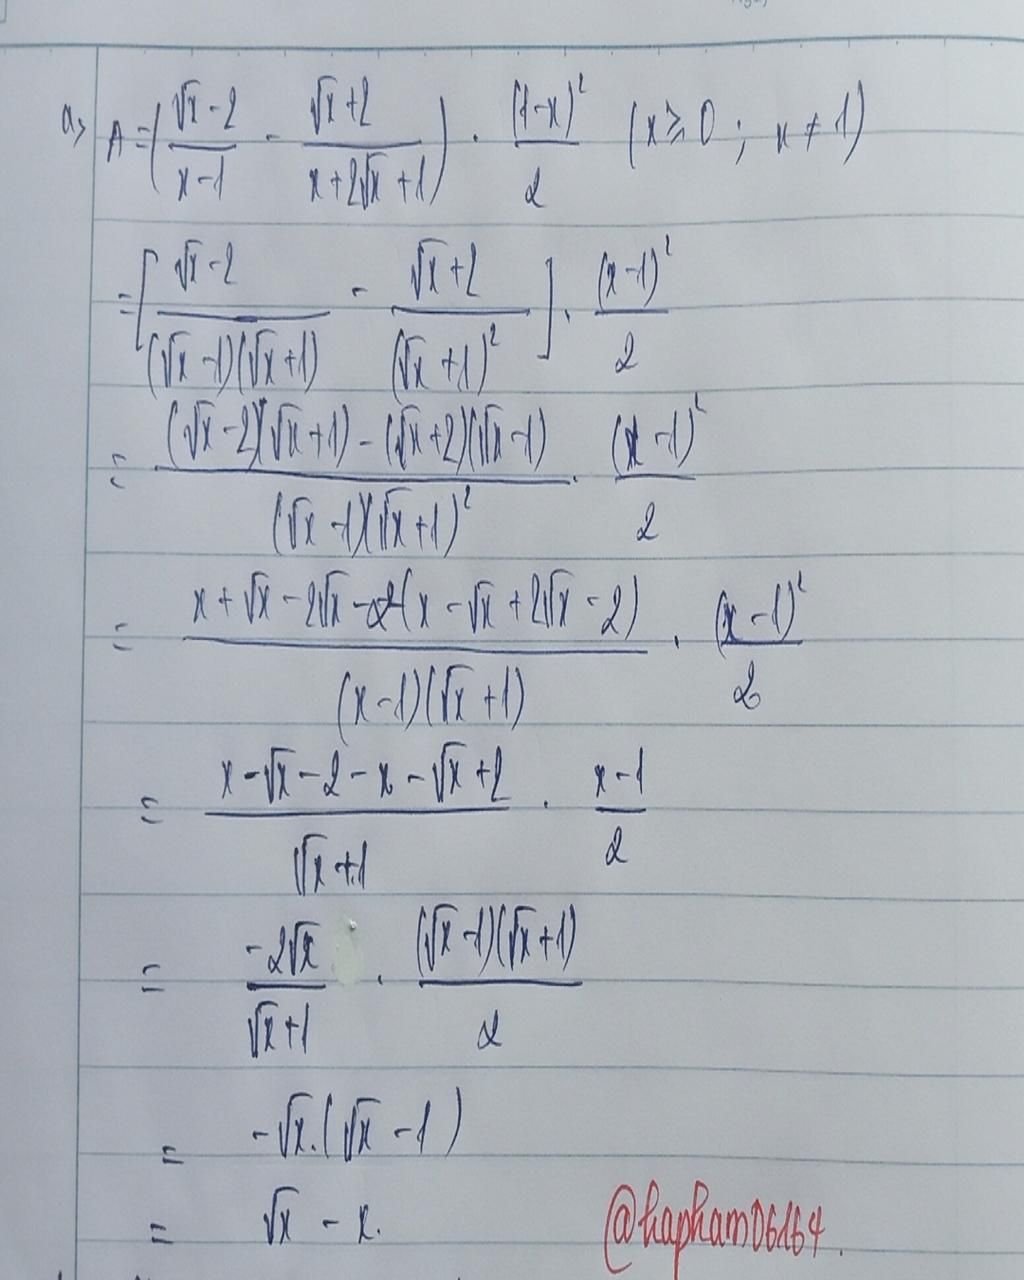 a, A = ( (√x - 2)/(x - 1) - (√x + 2)/(x + 2√x + 1) ) . (1 - x)²/2 (x ≥ 0 ; x ≠ 1)
= [ (√x - 2)/((√x - 1)(√x + 1)) - (√x + 2)/(√x + 1)² ] . (x - 1)²/2
= ((√x - 2)(√x + 1) - (√x + 2)(√x - 1))/((√x - 1)(√x + 1)²) . (x - 1)²/2
= (x + √x - 2√x - 2 - (x - √x + 2√x - 2))/((x - 1)(√x + 1)) . (x - 1)²/2
= (x - √x - 2 - x - √x + 2)/(√x + 1) . (x - 1)/2
= (-2√x)/(√x + 1) . ((√x - 1)(√x + 1))/2
= -√x.(√x - 1)
= √x - x.
@hapham06164.